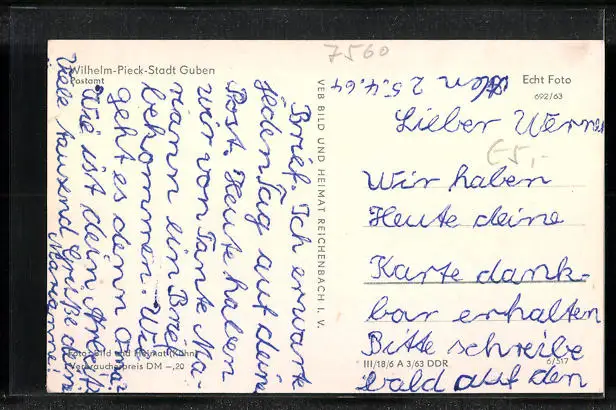 7560
Wilhelm-Pieck-Stadt Guben
Postamt
Echt Foto
692/63
den 25.4.64
Lieber Werner
€5,-
Wir haben
Heute deine
Karte dank-
bar erhalten
Bitte schreibe
bald auf den
Brief. Ich erwarte
jeden Tag auf deine
Post. Heute haben
wir von Tante Ma-
riann ein Brief
bekommen. Wie
geht es denn Oma?
Wie ist dein Arbeit?
Viele tausend Grüße deine
Marianne!
VEB BILD UND HEIMAT REICHENBACH I. V.
Foto: Bild und Heimat (Kühn)
Verbraucherpreis DM -,20
III/18/6 A 3/63 DDR
6/517